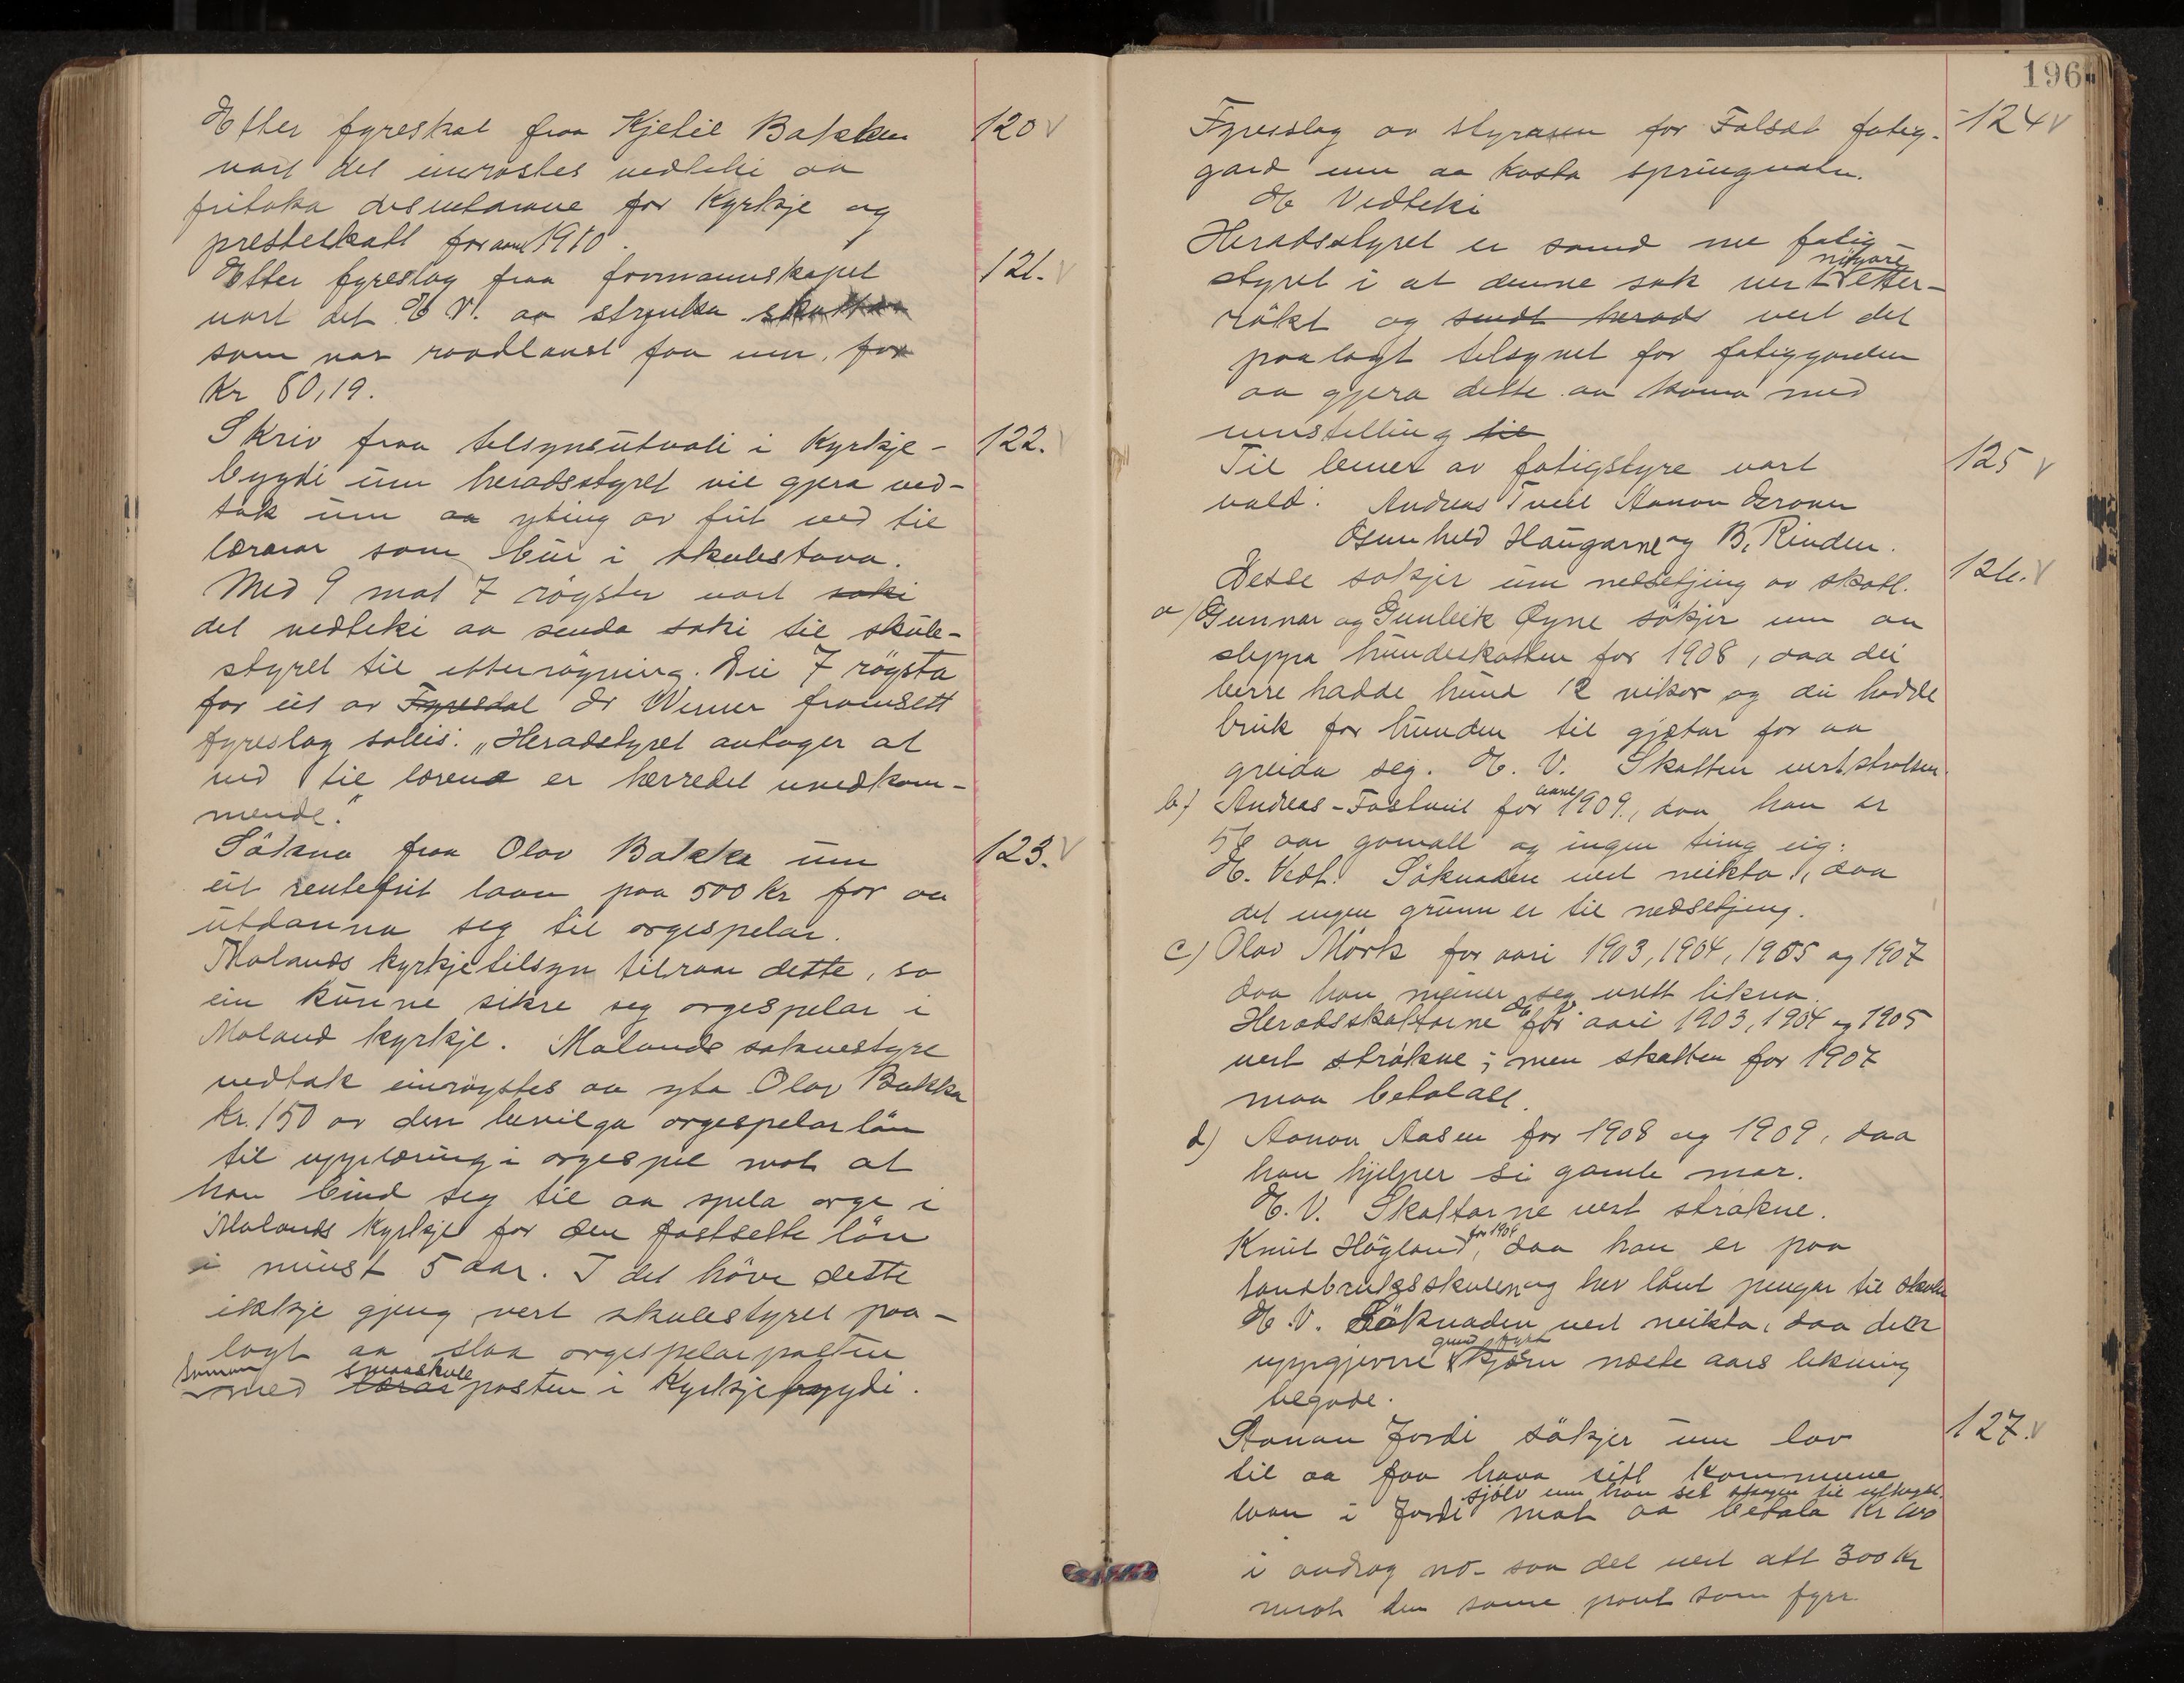 Etter fyreskot fraa Kjetil Bakken
vart det einrøstes vedteki aa
fritaka disentarane for Kyrkje og
presteskatt for aaret 1910.
120
Etter fyreslag fraa formannskapet
vart det E V. aa stryka skatten
som var raadlaust faa inn, for
Kr 80,19.
121.
Skriv fraa tilsynsutvali i Kyrkje-
bygdi um heradsstyret vil gjera ved-
tak um aa yting av frit ved til
lærarar som bur i skulestova.
Med 9 mot 7 röyster vart saki
det vedteki aa senda saki til skule-
styret til etterröyning. Dei 7 röysta
for eit av Fyresdal Dr Werner framsett
fyreslag soleis: „Heradstyret antager at
ved til lærene er herredet uvedkom-
mende."
122.
Søkna fraa Olav Bakka um
eit rentefrit laan paa 500 kr for aa
utdanna seg til orgespelar.
Molands kyrkjetilsyn tilraar dette, so
ein kunne sikre seg orgespelar i
Moland kyrkje. Molands soknestyre
vedtak einröystes aa yta Olav Bakka
kr. 150 av den bevilga orgespelarlön
til upplæring i orgespil mot at
han bind seg til aa spela orge i
Molands Kyrkje for den fastsette lön
i minst 5 aar. I det höve dette
ikkje gjeng vert skulestyret paa-
lagt aa slaa orgespelarposten
saman med læror smaaskule posten i Kyrkjebygdi.
123.
196
Fyreslag av styraren for Folsæt fatig-
gard um aa kosta springvatn.
E Vedteki
124
Heradsstyret er samd me fatig-
styret i at denne sak vert nöyare etter-
rökt og sendt herads vert det
paalagt tilsynet for fatiggarden
aa gjera dette aa koma med
innstelling til
Til lemer av fatigstyre vart
vald: Andreas Tveit Aanon
Osmund Haugarne og B. Rinden.
125
Desse sökjer um nedsetjing av skatt.
126.
a) Gunnar og Gunleik Øyne sökjer um aa
sleppa hundeskatten for 1908, daa dei
berre hadde hund 12 vikor og dei hadde
bruk for hunden til gjætar for aa
greida seg. E. V. Skatten vert stroken.
b) Andreas Fostveit for aaret 1909, daa han er
56 aar gamall og ingen ting eig.
E. Vedt. Söknaden vert neikta, daa
det ingen grunn er til nedsetjing.
c) Olav Mörk for aari 1903, 1904, 1905 og 1907
daa han meiner seg urett likna.
Heradsskattarne E V for aari 1903, 1904 og 1905
vert strokne; men skatten for 1907
maa betalast.
d) Aanon Aasen for 1908 og 1909, daa
han hjelper si gamle mor.
E. V. Skattarne vert strokne.
Knut Högland for 1908, daa han er paa
landbruksskulen og hev lånt pengar til skulen
E. V. Söknaden vert neikta, daa den
uppgjevne grunn kjem næste aars likning
tilgode.
Aanon Jordi sökjer um lov
til aa faa hava sitt kommune
laan i Jordi sjölv um han sel skogen til uthogst. mot aa betala Kr 200
i avdrag no - saa det vert att 300 Kr
mot den same pant som fyrr
127.